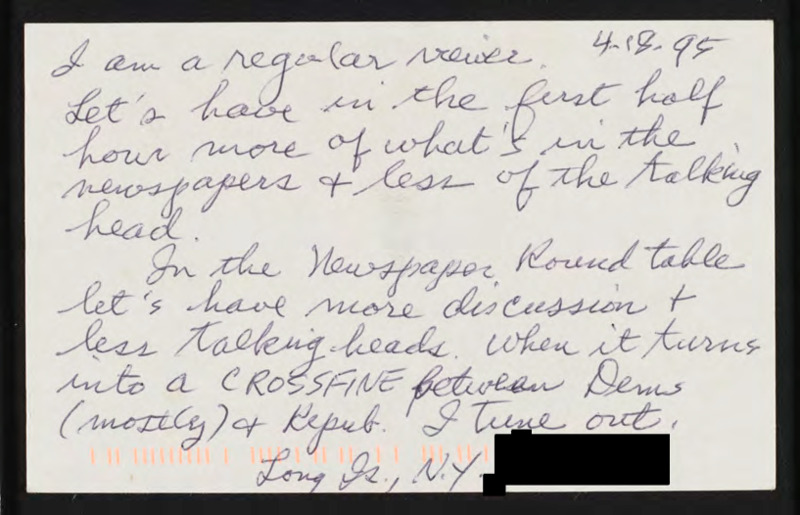 4-18-95
I am a regular viewer.
Let's have in the first half
hour more of what's in the
newspapers & less of the talking
head.
In the Newspaper Round table
let's have more discussion &
less talking heads. When it turns
into a CROSSFINE between Dems
(mostly) & Repub. I tune out.
Long Is., N.Y.